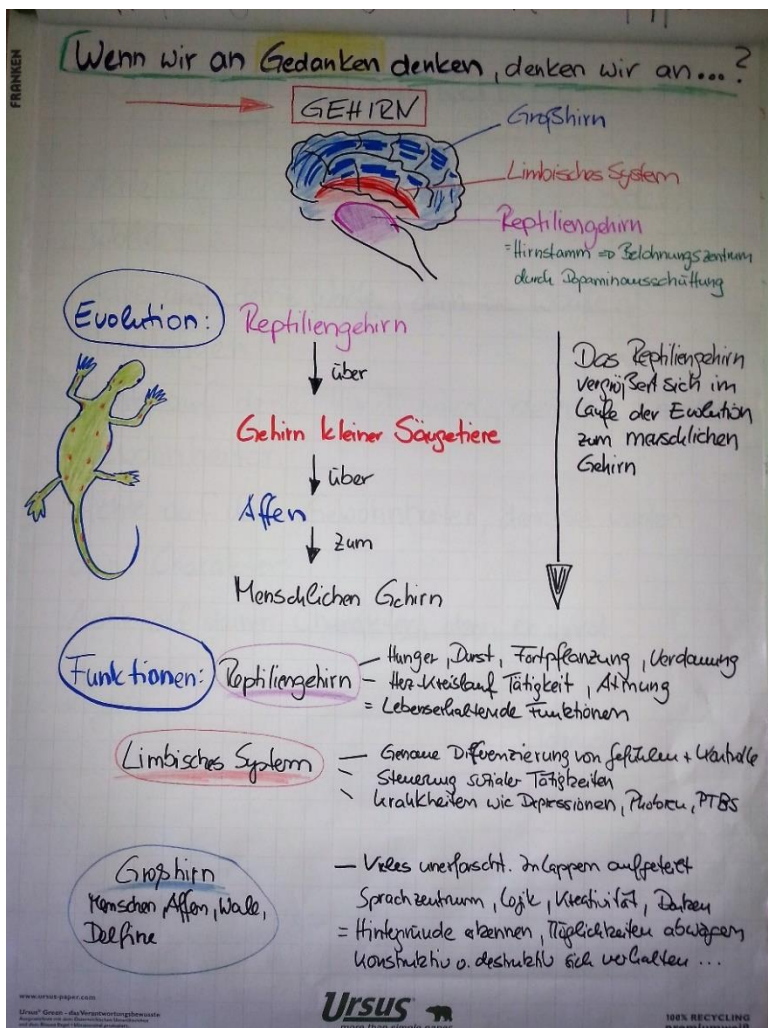 FRANKEN
Wenn wir an Gedanken denken, denken wir an...?
GEHIRN
Großhirn
Limbisches System
Reptiliengehirn
=Hirnstamm => Belohnungszentrum
durch Dopaminausschüttung
Evolution:
Reptiliengehirn
über
Gehirn kleiner Säugetiere
über
Affen
zum
Menschlichen Gehirn
Das Reptiliengehirn
vergrößert sich im
Laufe der Evolution
zum menschlichen
Gehirn
Funktionen:
Reptiliengehirn
- Hunger, Durst, Fortpflanzung, Verdauung
- Herz-Kreislauf Tätigkeit, Atmung
= Lebenserhaltende Funktionen
Limbisches System
- Genaue Differenzierung von Gefühlen + Kontrolle
- Steuerung sozialer Tätigkeiten
- Krankheiten wie Depressionen, Phobien, PTBS
Großhirn
Menschen, Affen, Wale,
Delfine
- Vieles unerforscht. In Lappen aufgeteilt
Sprachzentrum, Logik, Kreativität, Denken
= Hintergründe erkennen, Möglichkeiten abwägen
Konstruktiv o. destruktiv sich verhalten ...
www.ursus-paper.com
Ursus® Green - das Verantwortungsbewusste
Ursus
more than simple paper
100% RECYCLING